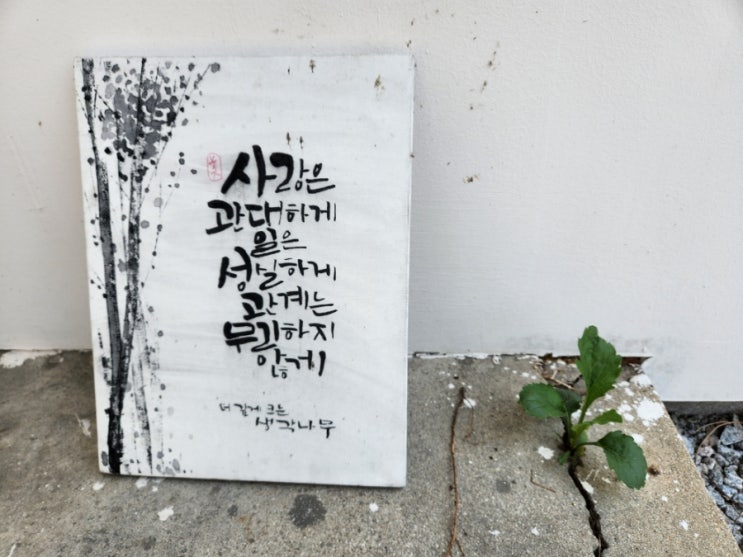 사랑은
관대하게
일은
성실하게
관계는
무리하지
않게
더 깊게 크는
생각나무